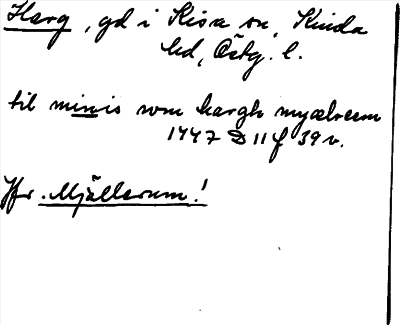 Harg, gd i Kisa sn, Kinda
hd, Östg. l.
til minis som hargh myælrem
1447 D 11 f 39 v.
Jfr. Mjällerum!